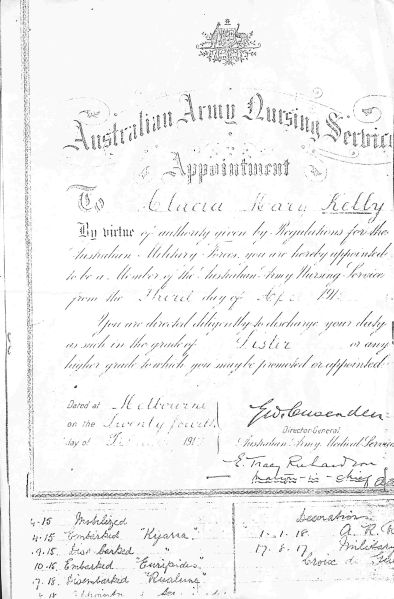 Australian Army Nursing Service
Appointment
To Mary Kelly
By virtue of authority given by Regulations for the
Australian Military Forces, you are hereby appointed
to be a Member of the Australian Army Nursing Service
from the Third day of 191
You are directed diligently to discharge your duty
as such in the grade of Sister or any
higher grade to which you may be promoted or appointed
Dated at Melbourne
on the Twenty fourth
day of 191
Director-General
Australian Army Medical Service
E. Tracy Richardson
Matron-in-Chief
Decorations
4-15 Mobilized
4-15 Embarked "Kyarra" 1-1-18 A. R.
9-15 17.8.17 Military
10-15 Embarked "Euripides" Croix de
7.18 Disembarked